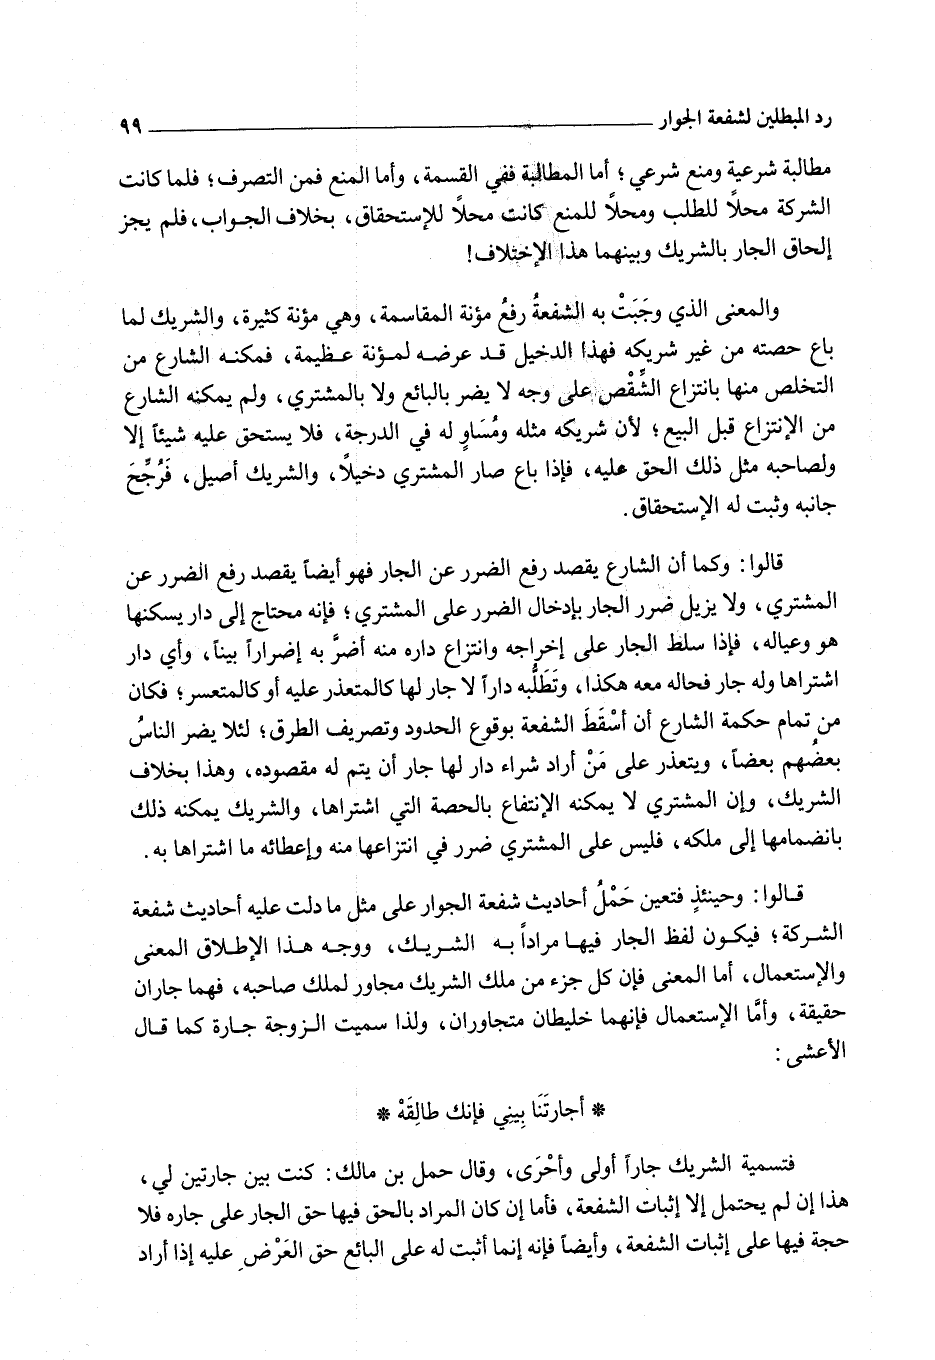 رد المبطلين لشفعة الجوار ٩٩
مطالبة شرعية ومنع شرعي؛ أما المطالبة ففي القسمة، وأما المنع فمن التصرف؛ فلما كانت
الشركة محلًا للطلب ومحلًا للمنع كانت محلًا للإستحقاق، بخلاف الجواب، فلم يجز
إلحاق الجار بالشريك وبينهما هذا الإختلاف!
والمعنى الذي وجَبَتْ به الشفعةُ رفعُ مؤنة المقاسمة، وهي مؤنة كثيرة، والشريك لما
باع حصته من غير شريكه فهذا الدخيل قد عرضه لمؤنة عظيمة، فمكنه الشارع من
التخلص منها بانتزاع الشِّقْص على وجه لا يضر بالبائع ولا بالمشتري، ولم يمكنه الشارع
من الإنتزاع قبل البيع؛ لأن شريكه مثله ومُسَاوٍ له في الدرجة، فلا يستحق عليه شيئاً إلا
ولصاحبه مثل ذلك الحق عليه، فإذا باع صار المشتري دخيلًا، والشريك أصيل، فَرُجِّحَ
جانبه وثبت له الإستحقاق.
قالوا: وكما أن الشارع يقصد رفع الضرر عن الجار فهو أيضاً يقصد رفع الضرر عن
المشتري، ولا يزيل ضرر الجار بإدخال الضرر على المشتري؛ فإنه محتاج إلى دار يسكنها
هو وعياله، فإذا سلط الجار على إخراجه وانتزاع داره منه أضرَّ به إضراراً بيناً، وأي دار
اشتراها وله جار فحاله معه هكذا، وتَطَلُّبه داراً لا جار لها كالمتعذر عليه أو كالمتعسر؛ فكان
من تمام حكمة الشارع أن أسْقَطَ الشفعة بوقوع الحدود وتصريف الطرق؛ لئلا يضر الناسُ
بعضُهم بعضاً، ويتعذر على مَنْ أراد شراء دار لها جار أن يتم له مقصوده، وهذا بخلاف
الشريك، وإن المشتري لا يمكنه الإنتفاع بالحصة التي اشتراها، والشريك يمكنه ذلك
بانضمامها إلى ملكه، فليس على المشتري ضرر في انتزاعها منه وإعطائه ما اشتراها به.
قالوا: وحينئذٍ فتعين حَمْلُ أحاديث شفعة الجوار على مثل ما دلت عليه أحاديث شفعة
الشركة؛ فيكون لفظ الجار فيها مراداً به الشريك، ووجه هذا الإطلاق المعنى
والإستعمال، أما المعنى فإن كل جزء من ملك الشريك مجاور لملك صاحبه، فهما جاران
حقيقة، وأمَّا الإستعمال فإنهما خليطان متجاوران، ولذا سميت الزوجة جارة كما قال
الأعشى:
* أجارتَنَا بِينِي فإنك طالِقَهْ *
فتسمية الشريك جاراً أولى وأحْرَى، وقال حمل بن مالك: كنت بين جارتين لي،
هذا إن لم يحتمل إلا إثبات الشفعة، فأما إن كان المراد بالحق فيها حق الجار على جاره فلا
حجة فيها على إثبات الشفعة، وأيضاً فإنه إنما أثبت له على البائع حق العَرْض عليه إذا أراد